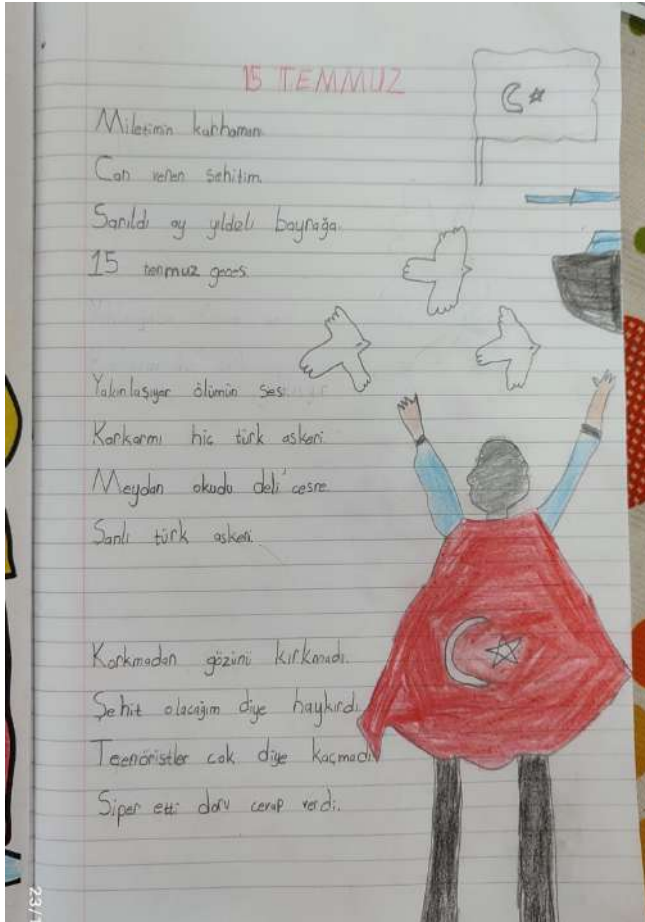 15 TEMMUZ
Miletimin kahramanı
Can veren şehitim
Sarıldı ay yıldızlı bayrağa.
15 temmuz gecesi
Yakınlaşıyor ölümün sesi
Korkarmı hiç türk askeri
Meydan okudu deli cesre
Şanlı türk askeri.
Korkmadan gözünü kırkmadı.
Şehit olacağım diye haykırdı
Teeröristler cok diye kaçmadı
Siper etti cevap verdi.
23/1